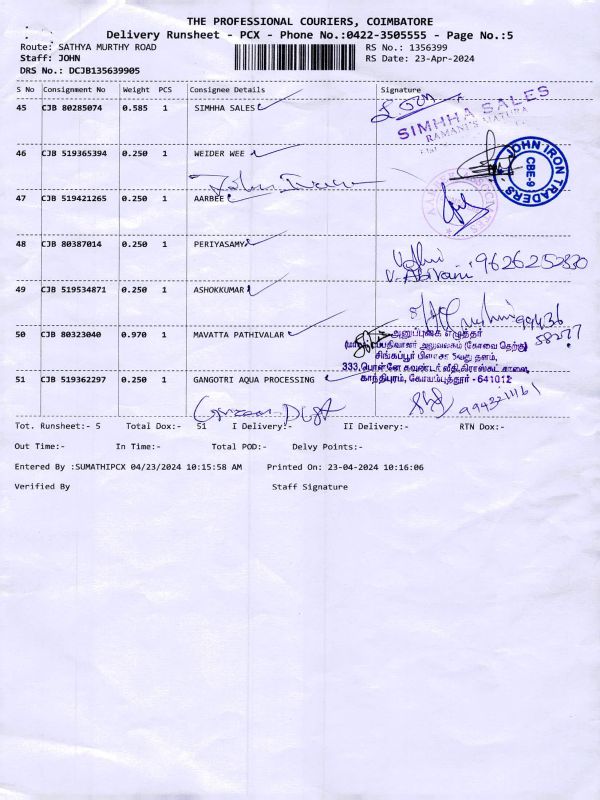 THE PROFESSIONAL COURIERS, COIMBATORE
Delivery Runsheet - PCX - Phone No.:0422-3505555 - Page No.:5
Route: SATHYA MURTHY ROAD RS No.: 1356399
Staff: JOHN RS Date: 23-Apr-2024
DRS No.: DCJB135639905
S No Consignment No Weight PCS Consignee Details Signature
45 CJB 80285074 0.585 1 SIMHHA SALES
SIMHHA SALES
46 CJB 519365394 0.250 1 WEIDER WEE
JOHN IRON TRADERS CBE-9
47 CJB 519421265 0.250 1 AARBEE
48 CJB 80387014 0.250 1 PERIYASAMY
9626252830
49 CJB 519534871 0.250 1 ASHOKKUMAR
50 CJB 80323040 0.970 1 MAVATTA PATHIVALAR
அனுப்புகை எழுத்தர்
சிங்கப்பூர் பிளாசா 5வது தளம்,
51 CJB 519362297 0.250 1 GANGOTRI AQUA PROCESSING
காந்திபுரம், கோயம்புத்தூர் - 641012
Tot. Runsheet:- 5 Total Dox:- 51 I Delivery:- II Delivery:- RTN Dox:-
Out Time:- In Time:- Total POD:- Delvy Points:-
Entered By :SUMATHIPCX 04/23/2024 10:15:58 AM Printed On: 23-04-2024 10:16:06
Verified By Staff Signature